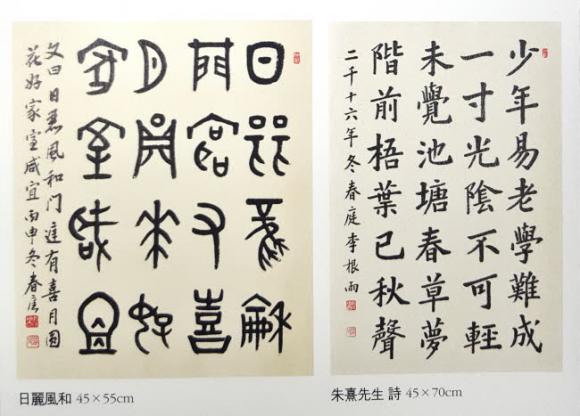 日麗風和
門庭有喜
月圓花好
家室咸宜
文曰日麗風和门庭有喜月圆
花好家室咸宜丙申冬春庭
日麗風和 45×55cm
少年易老學難成
一寸光陰不可輕
未覺池塘春草夢
階前梧葉已秋聲
二千十六年冬春庭李根雨
朱熹先生 詩 45×70cm